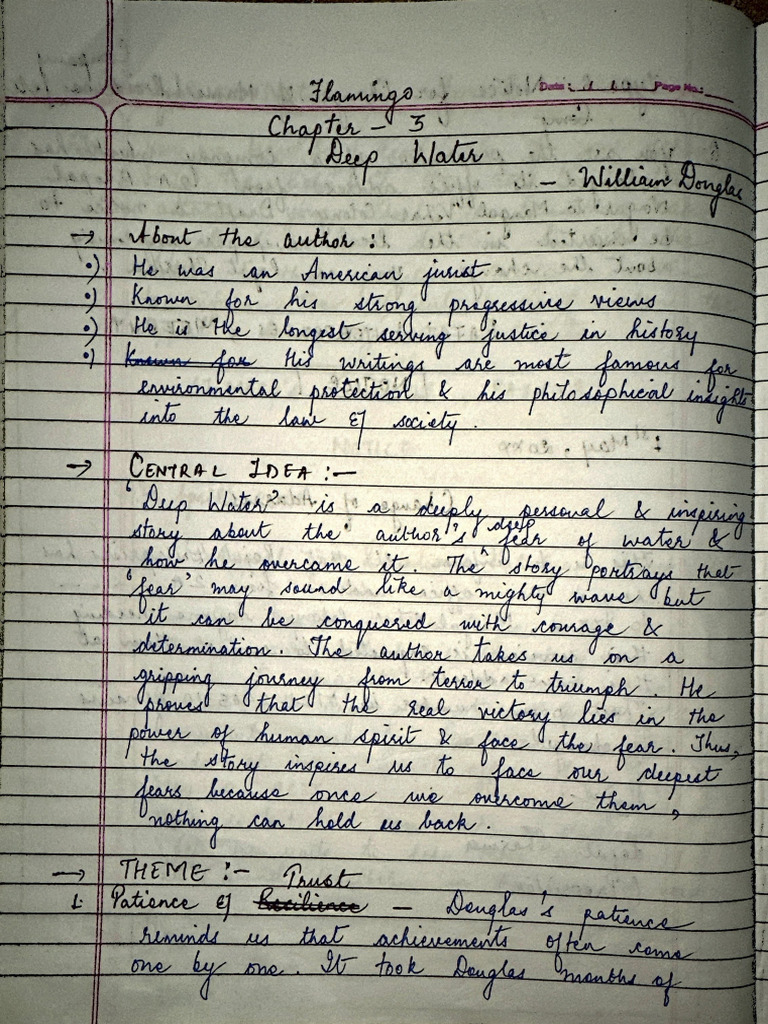 Date: Page No.:
Flamingo
Chapter - 3
Deep Water
- William Douglas
→ About the author :
•) He was an American jurist
•) Known for his strong progressive views
•) He is the longest serving justice in history
•) Known for His writings are most famous for
environmental protection & his philosophical insights
into the law & society.
→ CENTRAL IDEA :-
"Deep Water" is a deeply personal & inspiring
story about the author's deep fear of water &
how he overcame it. The story portrays that
'fear' may sound like a mighty wave but
it can be conquered with courage &
determination. The author takes us on a
gripping journey from terror to triumph. He
proves that the real victory lies in the
power of human spirit & face the fear. Thus,
the story inspires us to face our deepest
fears because once we overcome them,
nothing can hold us back.
→ THEME :-
1. Patience & Resilience Trust - Douglas's patience
reminds us that achievements often come
one by one. It took Douglas months of